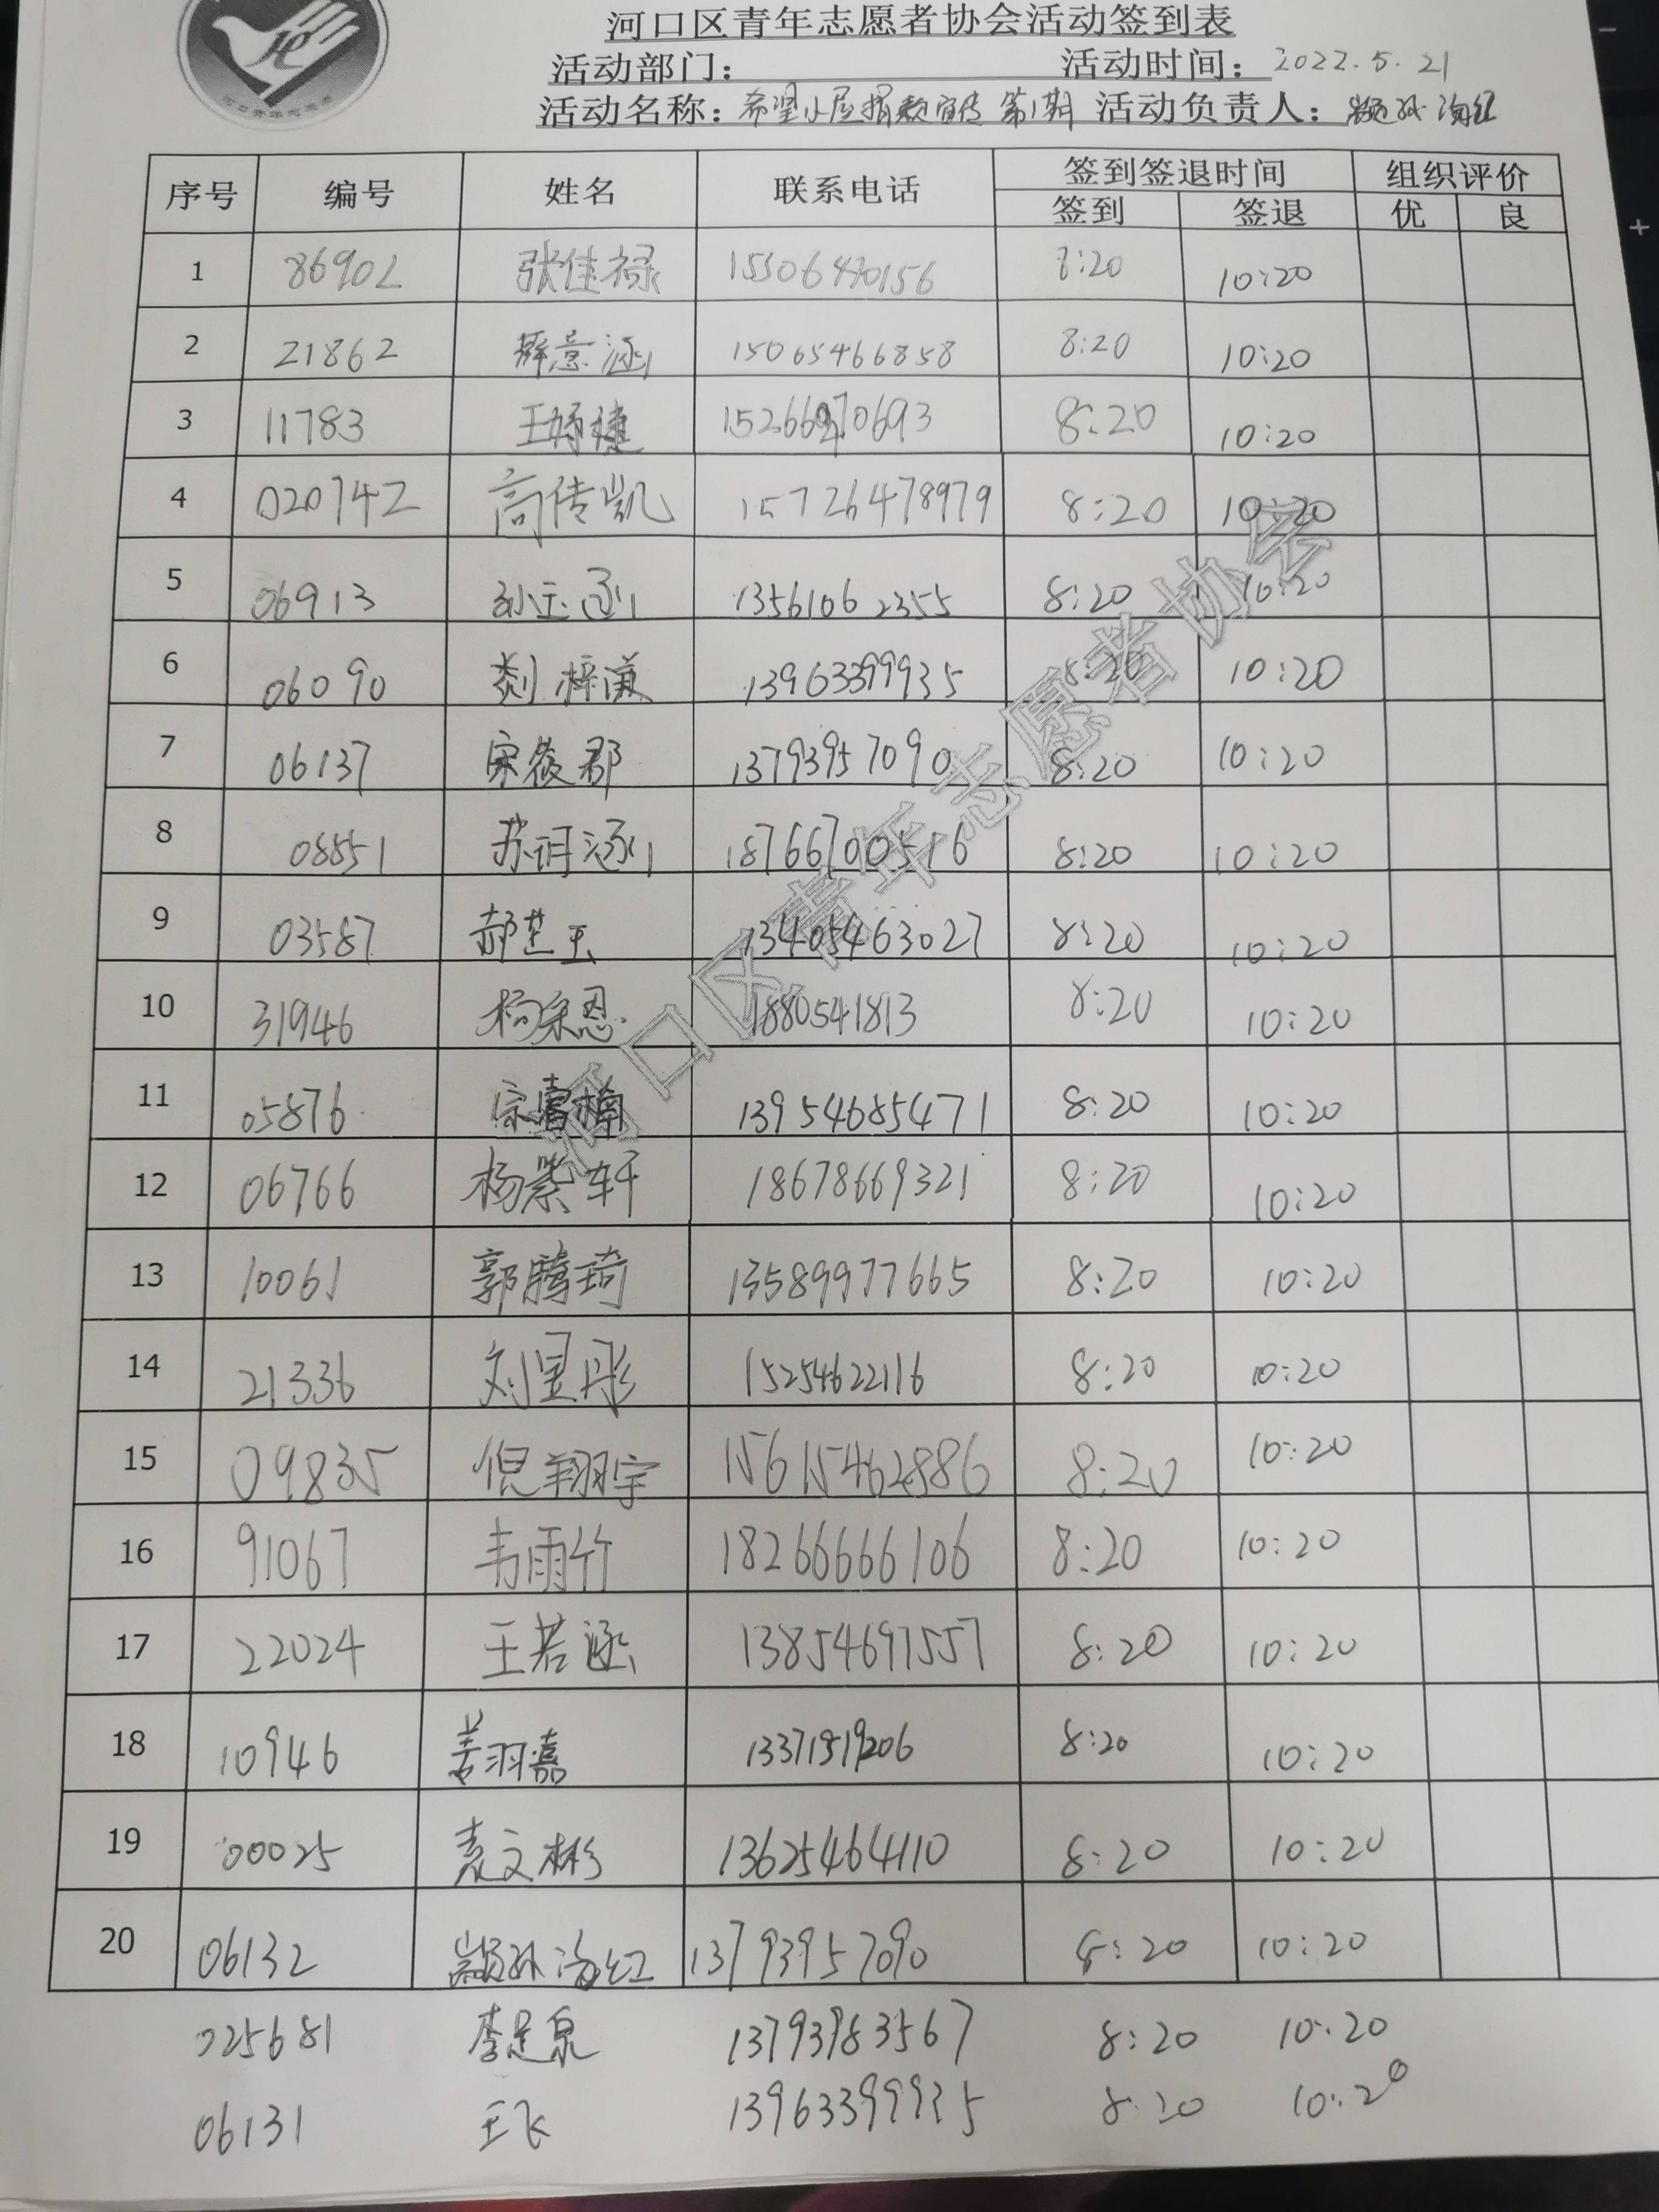 河口区青年志愿者协会活动签到表
活动部门： 活动时间：2022.5.21
活动名称：希望小屋捐款宣传 第1期 活动负责人：颛孙海红
序号 编号 姓名 联系电话 签到签退时间 组织评价
签到 签退 优 良
1 86902 张佳禄 15506470156 8:20 10:20
2 21862 薛意涵 15065466858 8:20 10:20
3 11783 王婧捷 8:20 10:20
4 020742 高传凯 15726478979 8:20 10:20
5 06913 孙玉涵 13561062355 8:20 10:20
6 06090 刘梓萌 13963399935 8:20 10:20
7 06137 宋筱郡 13793957090 8:20 10:20
8 08851 苏诃涵 18766700516 8:20 10:20
9 03587 郝芝玉 13405463027 8:20 10:20
10 31946 杨宗恩 1880541813 8:20 10:20
11 05876 宗睿楠 13954685471 8:20 10:20
12 06766 杨紫轩 18678669321 8:20 10:20
13 10061 郭腾琦 13589977665 8:20 10:20
14 21336 刘昱彤 15254622116 8:20 10:20
15 09835 倪翔宇 15615462886 8:20 10:20
16 91067 韦雨竹 18266666106 8:20 10:20
17 22024 王若涵 13854697557 8:20 10:20
18 10946 姜羽嘉 13371519206 8:20 10:20
19 00025 袁文彬 13625464110 8:20 10:20
20 06132 颛孙海红 13793957090 8:20 10:20
025681 李是泉 13793983567 8:20 10:20
06131 王飞 13963399935 8:20 10:20
河口区青年志愿者协会